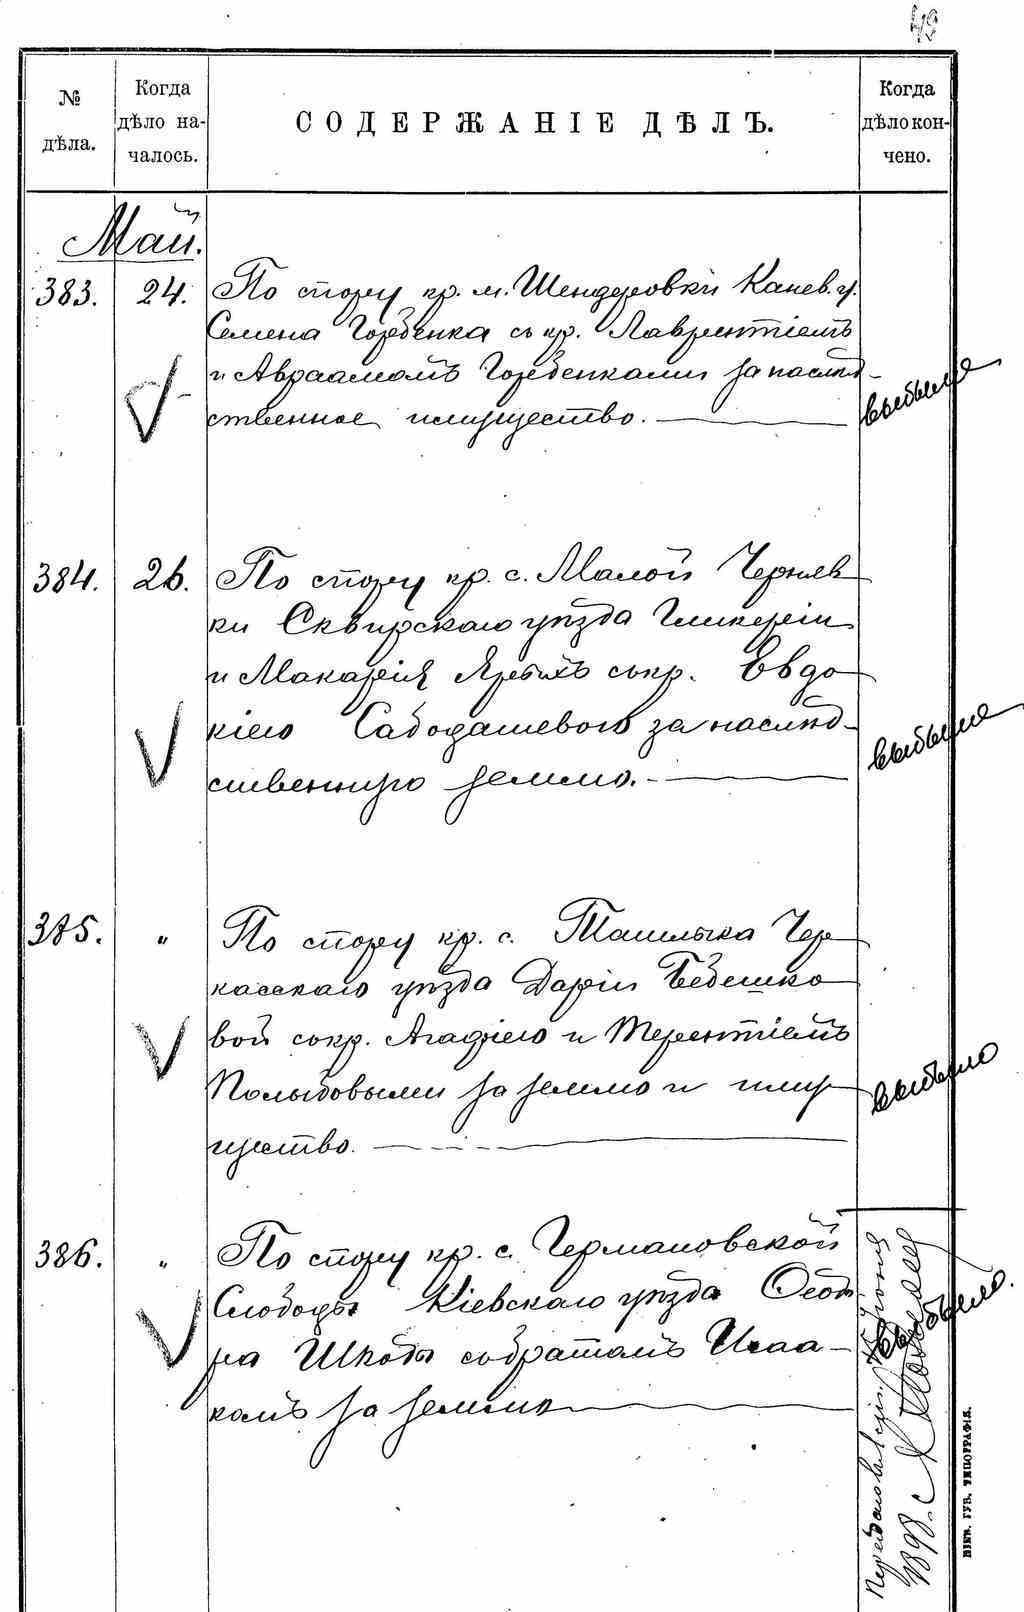 № дѣла.
Когда дѣло на-чалось.
СОДЕРЖАНІЕ ДѢЛЪ.
Когда дѣло кон-чено.
Май.
383. 24. По спору кр. м. Шендеровки Канев. у.
Семена Горбенка съ кр. Лаврентіемъ
и Авраамомъ Горбенками за наслѣд-
ственное имущество.
выбыло
384. 26. По спору кр. с. Малой Черняв
ки Сквирскаго уѣзда Гликеріи
и Макарія Яребихъ съ кр. Евдо
кіею Сабодашевою за наслѣд-
ственную землю.
выбыло
385. " По спору кр. с. Ташлыка Чер
касскаго уѣзда Даріи Бебешко
вой съ кр. Агафіею и Терентіемъ
Полыбовыми за землю и иму
щество.
выбыло
386. " По спору кр. с. Германовской
Слободы Кіевскаго уѣзда Ѳедо
ра Шкоды съ братомъ Исаа-
комъ за землю
выбыло.
1898. с
КІЕВ. ГУБ. ТИПОГРАФІЯ.